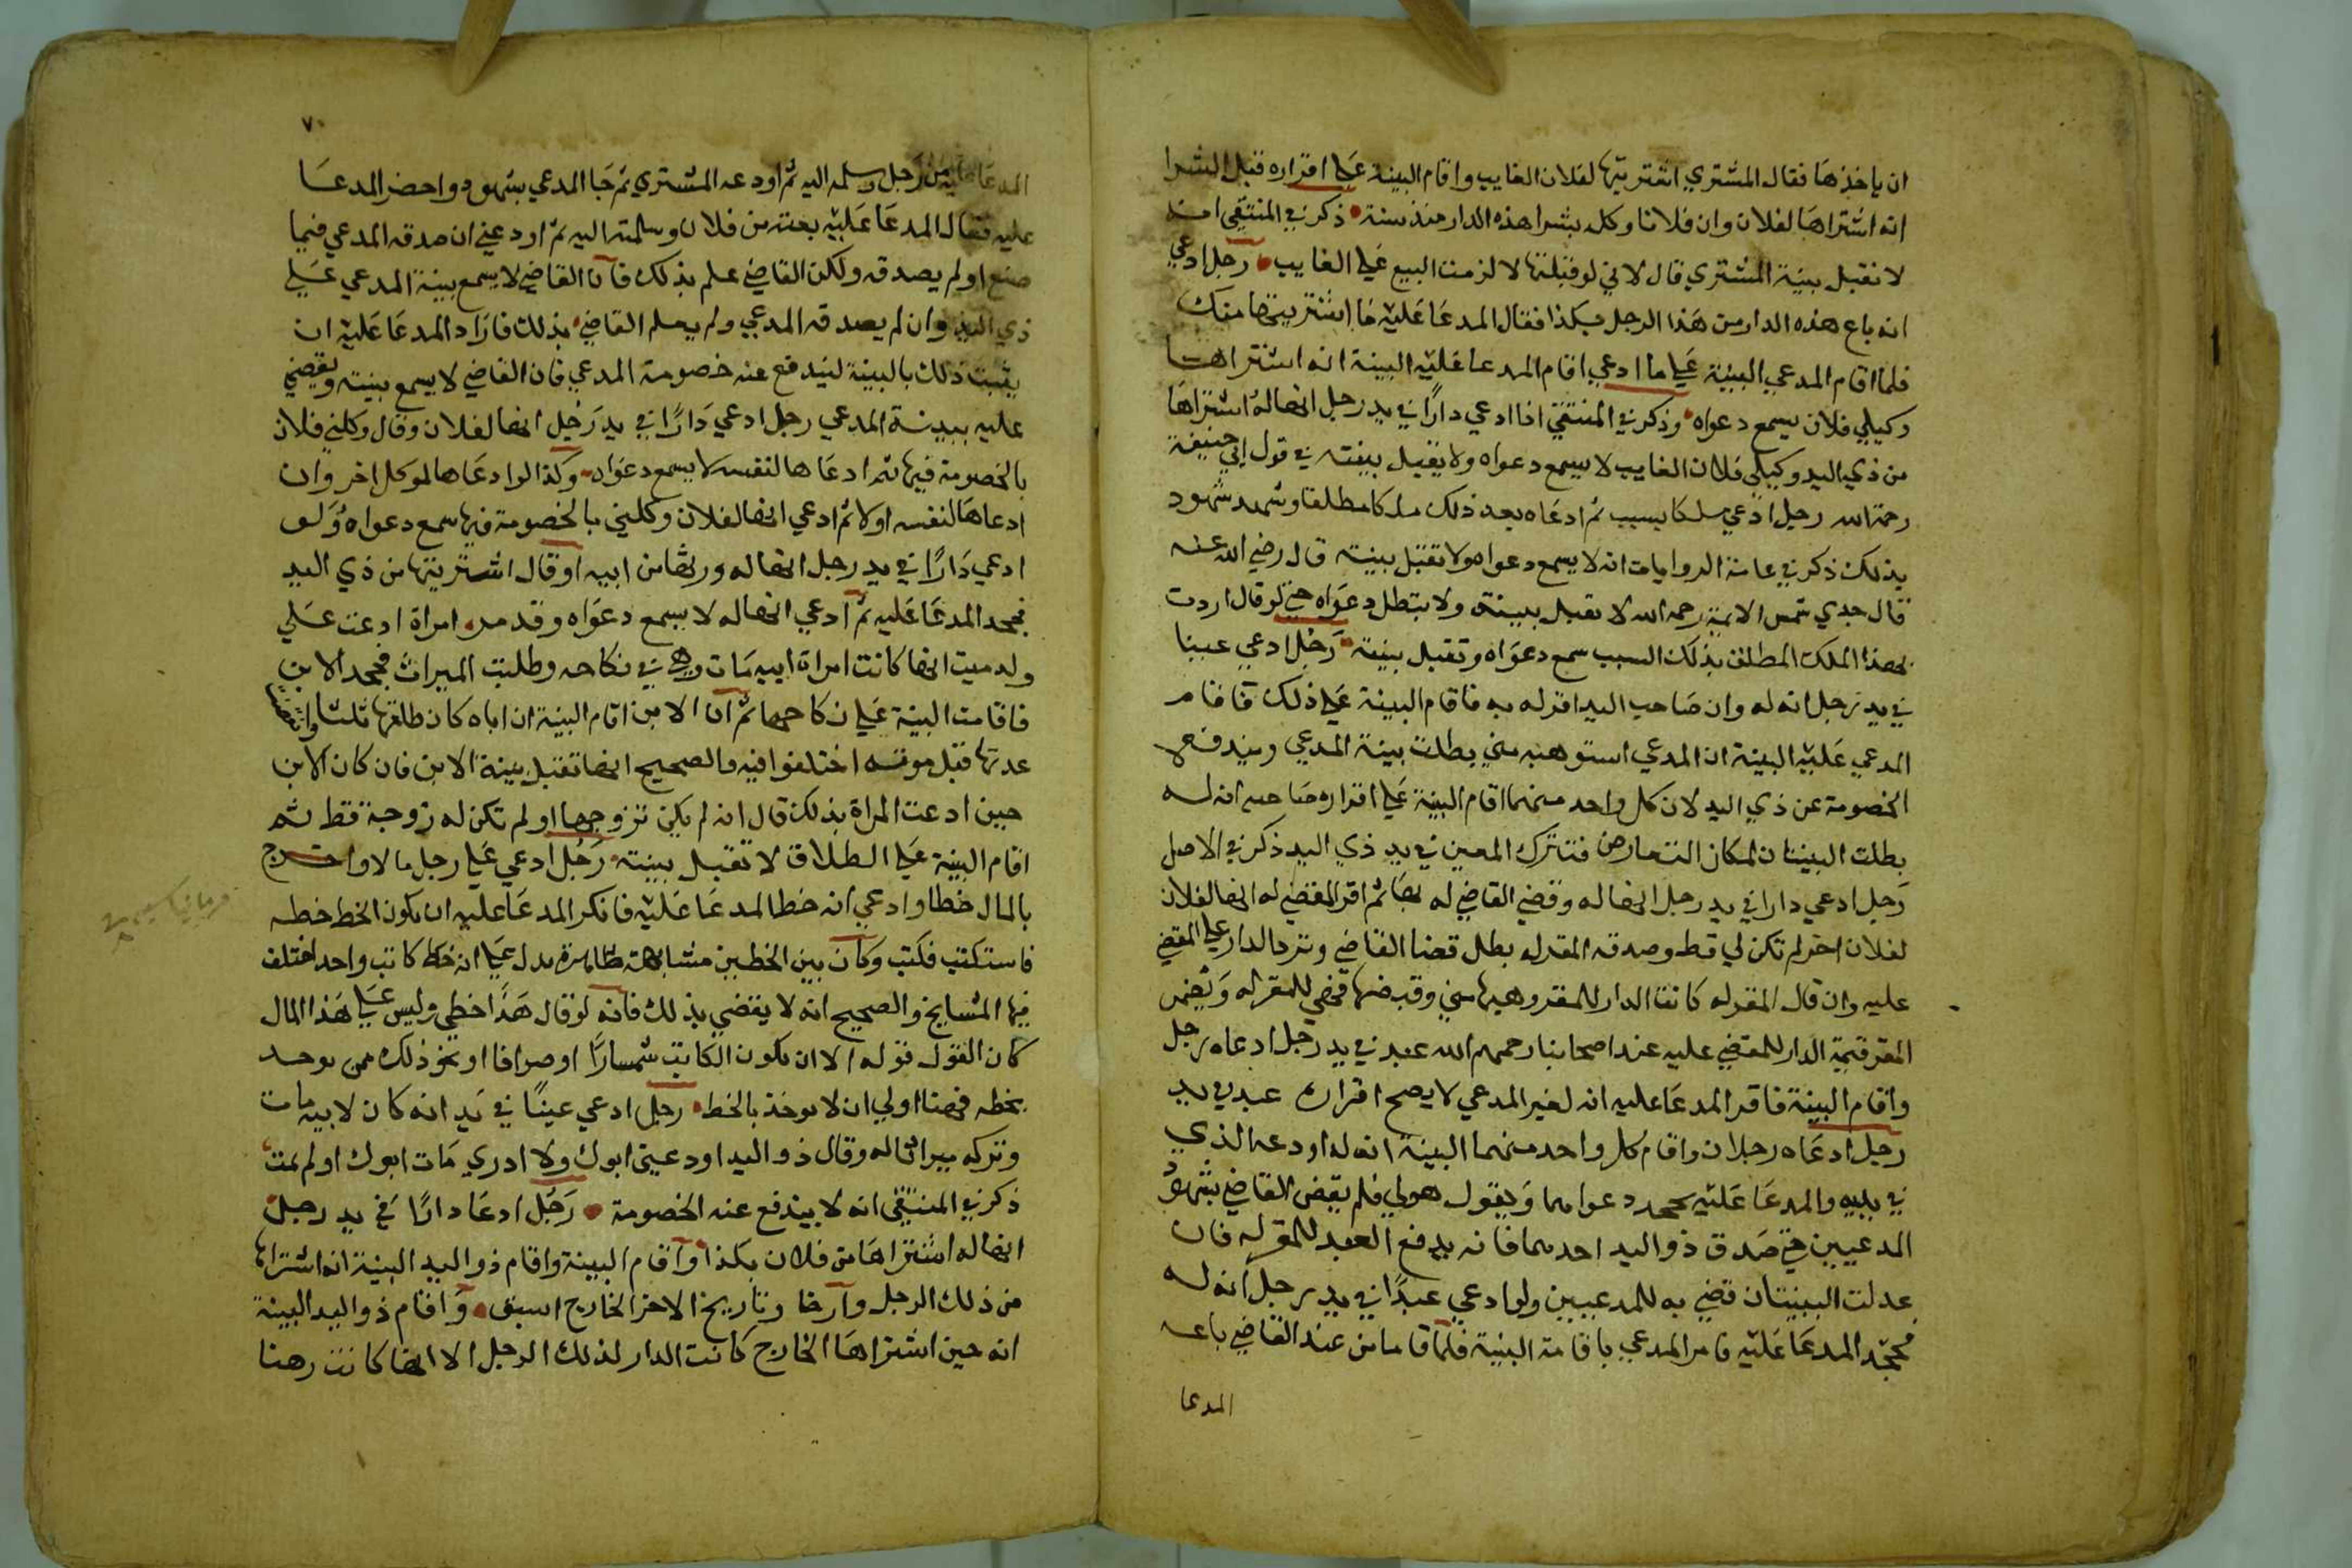 ان ياخذها فقال المشتري اشتريتها لفلان الغايب واقام البينة علي اقراره قبل الشرا
انه اشتراها لفلان وان فلانا وكله بشرا هذه الدار منذ سنة ذكر في المنتقي انه
لا تقبل بينة المشتري قال لاني لو قبلتها لالزمت البيع علي الغايب رجل ادعي
انه باع هذه الدار من هذا الرجل بكذا فقال المدعا عليه ما اشتريتها منك
فلما اقام المدعي البينة علي ما ادعي اقام المدعا عليه البينة انه اشتراها
وكيلي فلان يسمع دعواه وذكر في المنتقي اذا ادعي دارا في يد رجل انها له اشتراها
من ذي اليد وكيلي فلان الغايب لا يسمع دعواه ولا يقبل بينته في قول ابي حنيفة
رحمة الله رجل ادعي ملكا بسبب ثم ادعاه بعد ذلك ملكا مطلقا وشهد شهود
بذلك ذكر في عامة الروايات انه لا يسمع دعواه ولا تقبل بينته قال رضي الله عنه
قال جدي شمس الايمة رحمه الله لا تقبل بينته ولا يبطل دعواه حتي لو قال اردت
بهذا الملك المطلق بذلك السبب سمع دعواه وتقبل بينته رجل ادعي عينا
في يد رجل انه له وان صاحب اليد اقر له به فاقام البينة علي ذلك فاقام
المدعي عليه البينة ان المدعي استوهبه مني بطلت بينة المدعي ويندفع
الخصومة عن ذي اليد لان كل واحد منهما اقام البينة علي اقرار صاحبه انه له
بطلت البينتان لمكان التعارض فتترك المعين في يد ذي اليد ذكر في الاصل
رجل ادعي دارا في يد رجل انها له وقضي القاضي له بها ثم اقر المقضي له انها لفلان
لفلان اخر لم تكن لي قط وصدقه المقر له بطل قضا القاضي وترد الدار علي المقضي
عليه وان قال المقر له كانت الدار للمقر وهبها مني وقبضتها قضي للمقر له ويضمن
المقر قيمة الدار للمقضي عليه عند اصحابنا رحمهم الله عبد في يد رجل ادعاه رجل
واقام البينة فاقر المدعا عليه انه لغير المدعي لا يصح اقراره عبد في يد
رجل ادعاه رجلان واقام كل واحد منهما البينة انه له اودعه الذي
في يديه والمدعا عليه يجحد دعواهما ويقول هو لي فلم يقض القاضي بشهود
المدعيين حتي صدق ذو اليد احدهما فانه يدفع العبد للمقر له فان
عدلت البينتان قضي به للمدعيين ولو ادعي عبدا في يد رجل انه له
فجحد المدعا عليه فامر المدعي باقامة البينة فلما قاما من عند القاضي باعه
المدعا
٧٠
المدعا عليه من رجل وسلمه اليه ثم اودعه المشتري ثم جا المدعي بشهود واحضر المدعا
عليه فقال المدعا عليه بعته من فلان وسلمته اليه ثم اودعني ان صدقه المدعي فيما
صنع او لم يصدقه ولكن القاضي علم بذلك فان القاضي لا يسمع بينة المدعي علي
ذي اليد وان لم يصدقه المدعي ولم يعلم القاضي بذلك فاراد المدعا عليه ان
يثبت ذلك بالبينة ليندفع عنه خصومة المدعي فان القاضي لا يسمع بينته ويقضي
عليه ببينة المدعي رجل ادعي دارا في يد رجل انها لفلان وقال وكلني فلان
بالخصومة فيها ثم ادعاها لنفسه لا يسمع دعواه وكذا لو ادعاها لموكل اخر وان
ادعاها لنفسه اولا ثم ادعي انها لفلان وكلني بالخصومة فيها سمع دعواه ولو
ادعي دارا في يد رجل انها له ورثها من ابيه او قال اشتريتها من ذي اليد
فجحد المدعا عليه ثم ادعي انها له لا يسمع دعواه وقد مر امراة ادعت علي
ولد ميت انها كانت امراة ابيه مات وهي في نكاحه وطلبت الميراث فجحد الابن
فاقامت البينة علي نكاحها ثم ان الابن اقام البينة ان اباه كان طلقها ثلثا وانقضا
عدتها قبل موته اختلفوا فيه والصحيح انها تقبل بينة الابن فان كان الابن
حين ادعت المراة بذلك قال انه لم يكن تزوجها او لم تكن له زوجة قط ثم
اقام البينة علي الطلاق لا تقبل بينته رجل ادعي علي رجل مالا واخرج
بالمال خطا وادعي انه خط المدعا عليه فانكر المدعا عليه ان يكون الخط خطه
فاستكتب فكتب وكان بين الخطين مشابهة ظاهرة يدل علي انه خط كاتب واحد اختلف
فيها المشايخ والصحيح انه لا يقضي بذلك فانه لو قال هذا خطي وليس علي هذا المال
كان القول قوله الا ان يكون الكاتب شمسارا او صرافا او نحو ذلك ممن يوخد
بخطه فههنا اولي ان لا يوخذ بالخط رجل ادعي عينا في يد انه كان لابيه مات
وتركه ميراثا له وقال ذو اليد اودعني ابوك ولا ادري مات ابوك او لم يمت
ذكر في المنتقي انه لا يندفع عنه الخصومة رجل ادعا دارا في يد رجل
انها له اشتراها من فلان بكذا واقام البينة واقام ذو اليد البينة انه اشتراها
من ذلك الرجل وارخا وتاريخ الاخر الخارج اسبق واقام ذو اليد البينة
انه حين اشتراها الخارج كانت الدار لذلك الرجل الا انها كانت رهنا